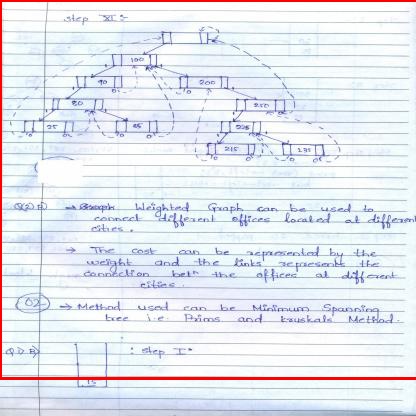 Step XI :-
100
90 200
80 250
25 85 225
215 235
Q(2) A) → Graph Weighted Graph can be used to
connect different offices located at different
cities.
→ The cost can be represented by the
weight and the links represents the
connection betn the offices at different
cities.
02 → Method used can be Minimum Spanning
tree i.e. Prims and kruskals Method.
: Step I :
15